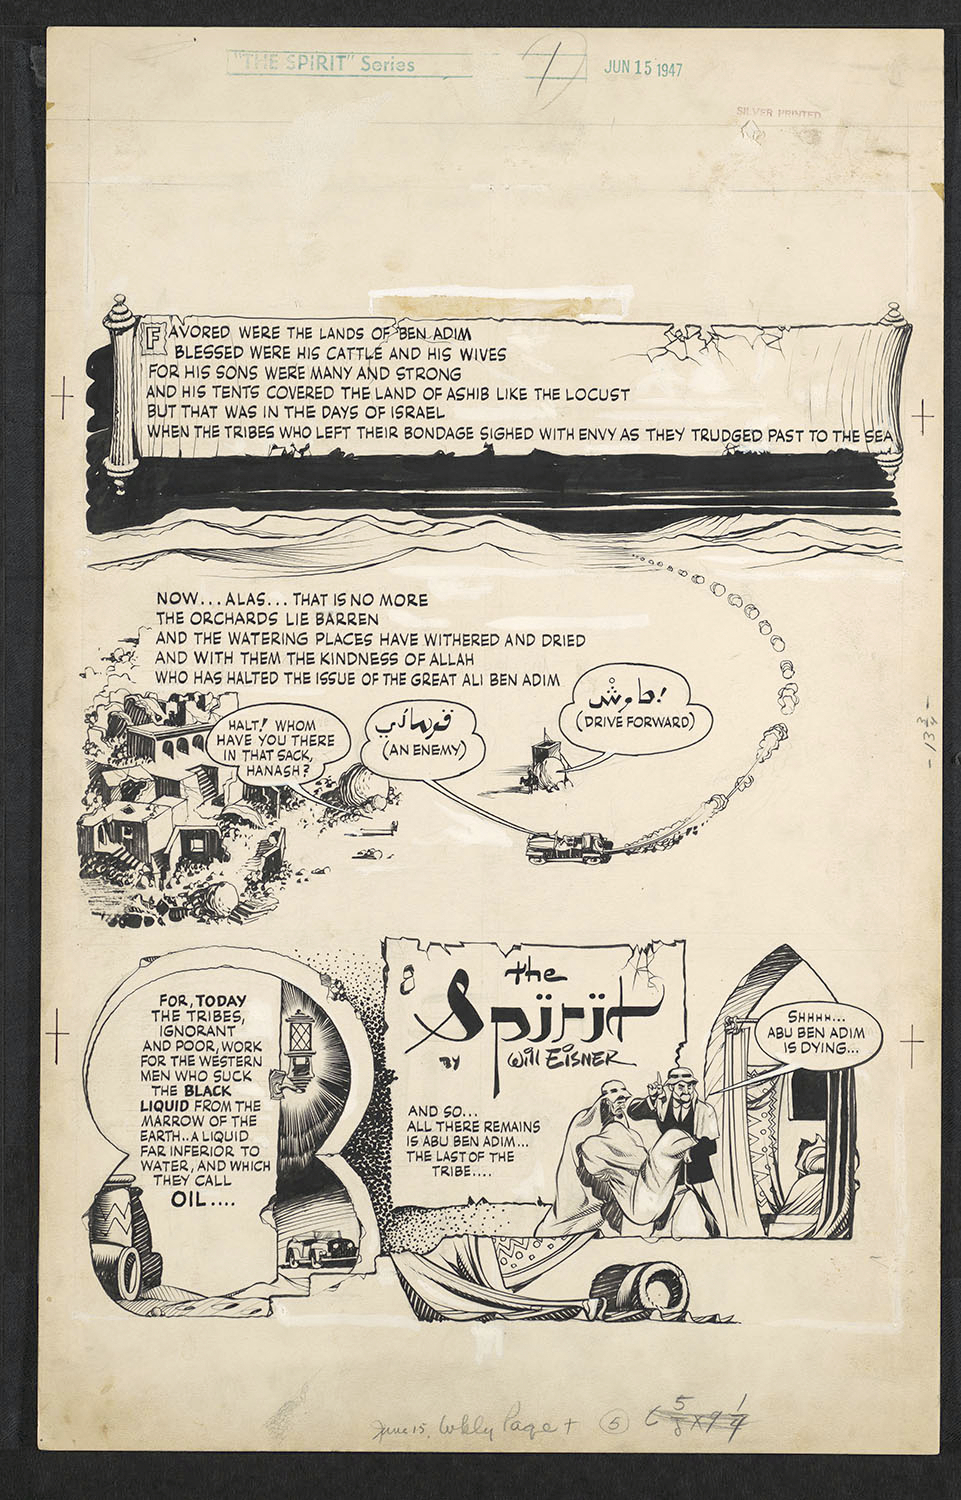 "THE SPIRIT" Series
JUN 15 1947
SILVER PRINTED
FAVORED WERE THE LANDS OF BEN ADIM
BLESSED WERE HIS CATTLE AND HIS WIVES
FOR HIS SONS WERE MANY AND STRONG
AND HIS TENTS COVERED THE LAND OF ASHIB LIKE THE LOCUST
BUT THAT WAS IN THE DAYS OF ISRAEL
WHEN THE TRIBES WHO LEFT THEIR BONDAGE SIGHED WITH ENVY AS THEY TRUDGED PAST TO THE SEA
NOW... ALAS... THAT IS NO MORE
THE ORCHARDS LIE BARREN
AND THE WATERING PLACES HAVE WITHERED AND DRIED
AND WITH THEM THE KINDNESS OF ALLAH
WHO HAS HALTED THE ISSUE OF THE GREAT ALI BEN ADIM
HALT! WHOM
HAVE YOU THERE
IN THAT SACK,
HANASH?
(AN ENEMY)
(DRIVE FORWARD)
FOR, TODAY
THE TRIBES,
IGNORANT
AND POOR, WORK
FOR THE WESTERN
MEN WHO SUCK
THE BLACK
LIQUID FROM THE
MARROW OF THE
EARTH.. A LIQUID
FAR INFERIOR TO
WATER, AND WHICH
THEY CALL
OIL....
the
Spirit
BY Will EISNER
AND SO...
ALL THERE REMAINS
IS ABU BEN ADIM...
THE LAST OF THE
TRIBE....
SHHHH...
ABU BEN ADIM
IS DYING...
June 15, Wkly Page +
5